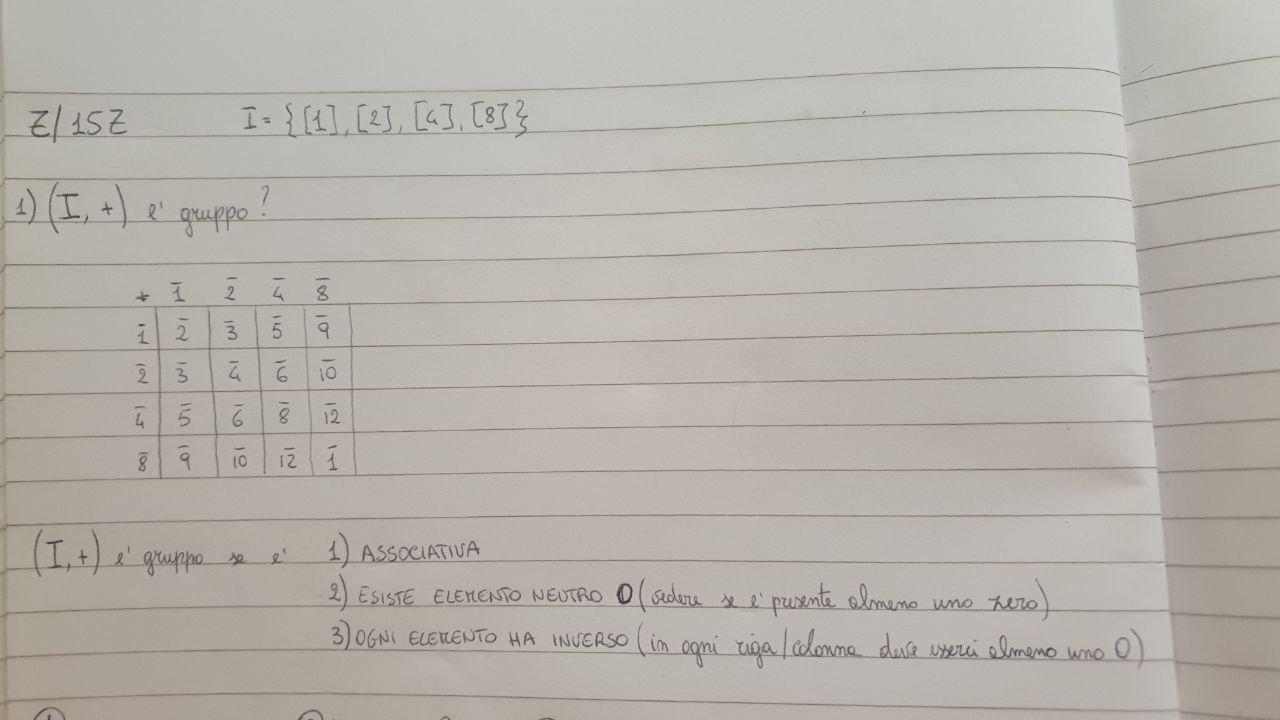 Z/15Z I = {[1], [2], [4], [8]}
1) (I, +) e' gruppo?
+ 1̄ 2̄ 4̄ 8̄
1̄ 2̄ 3̄ 5̄ 9̄
2̄ 3̄ 4̄ 6̄ 10̄
4̄ 5̄ 6̄ 8̄ 12̄
8̄ 9̄ 10̄ 12̄ 1̄
(I, +) e' gruppo se e' 1) ASSOCIATIVA
2) ESISTE ELEMENTO NEUTRO 0 (vedere se e' presente almeno uno zero)
3) OGNI ELEMENTO HA INVERSO (in ogni riga/colonna deve esserci almeno uno 0)